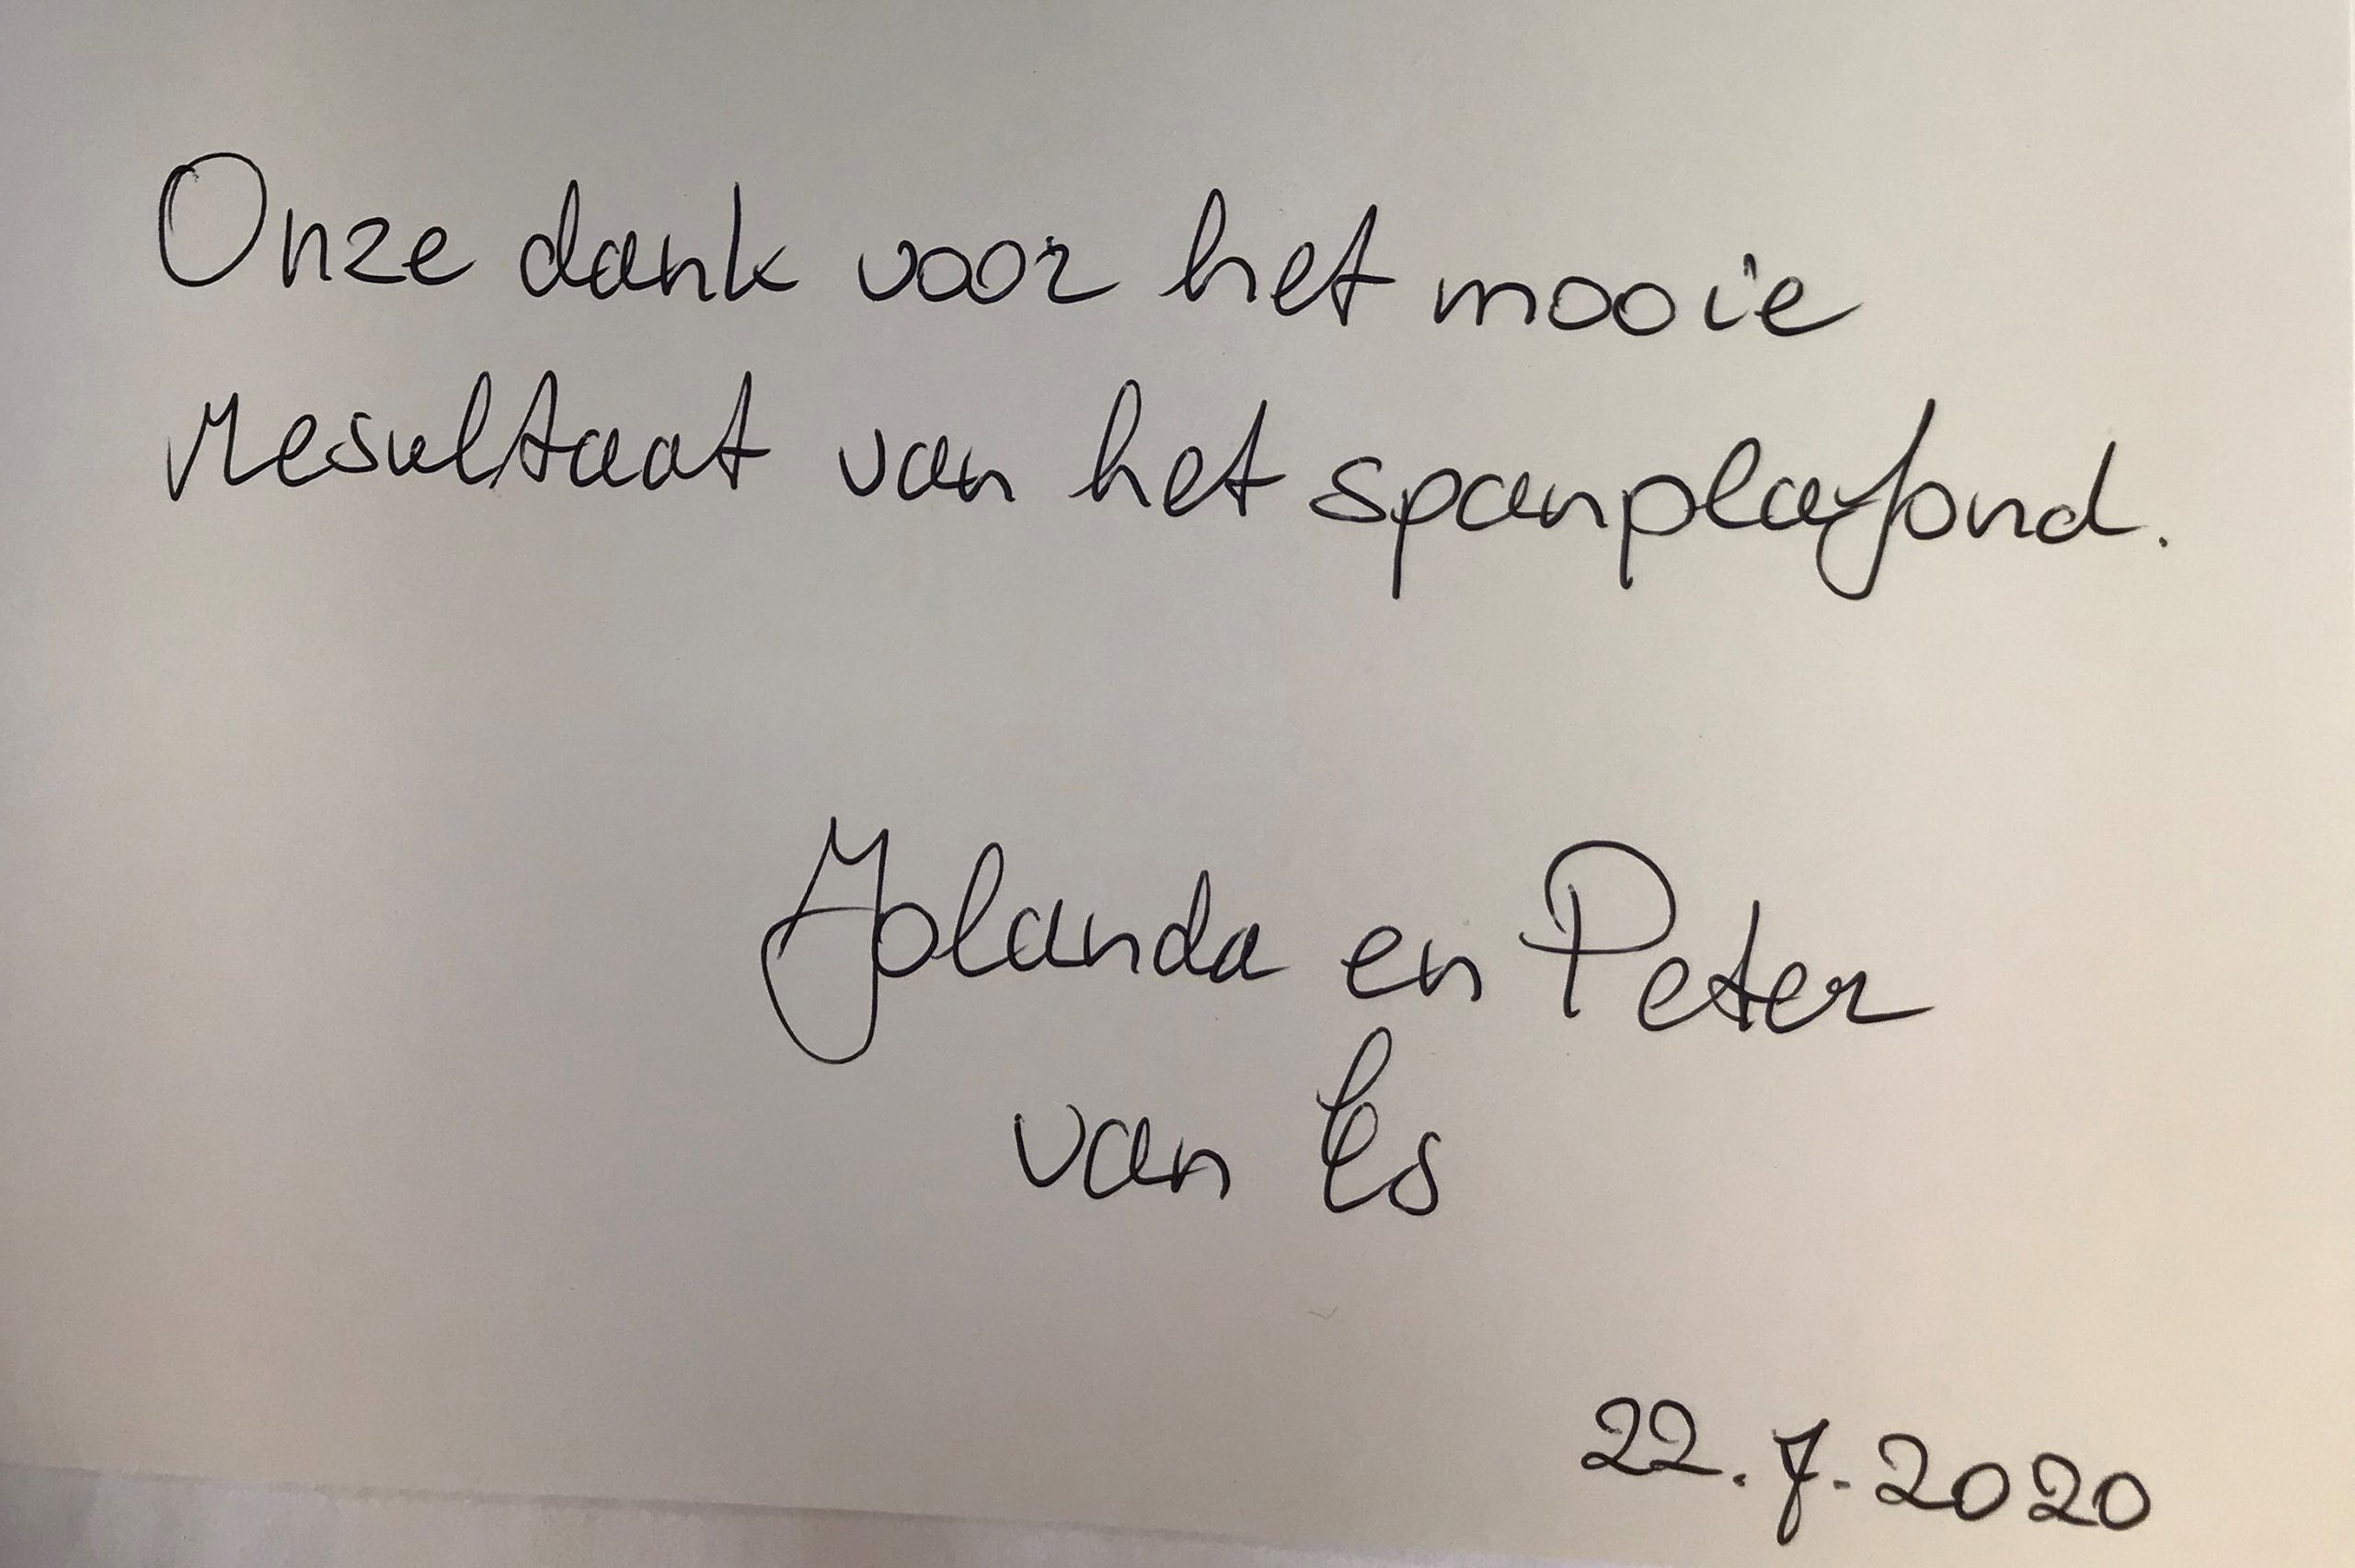 Onze dank voor het mooie
resultaat van het spanplafond.
Jolanda en Peter
van Es
22.7.2020